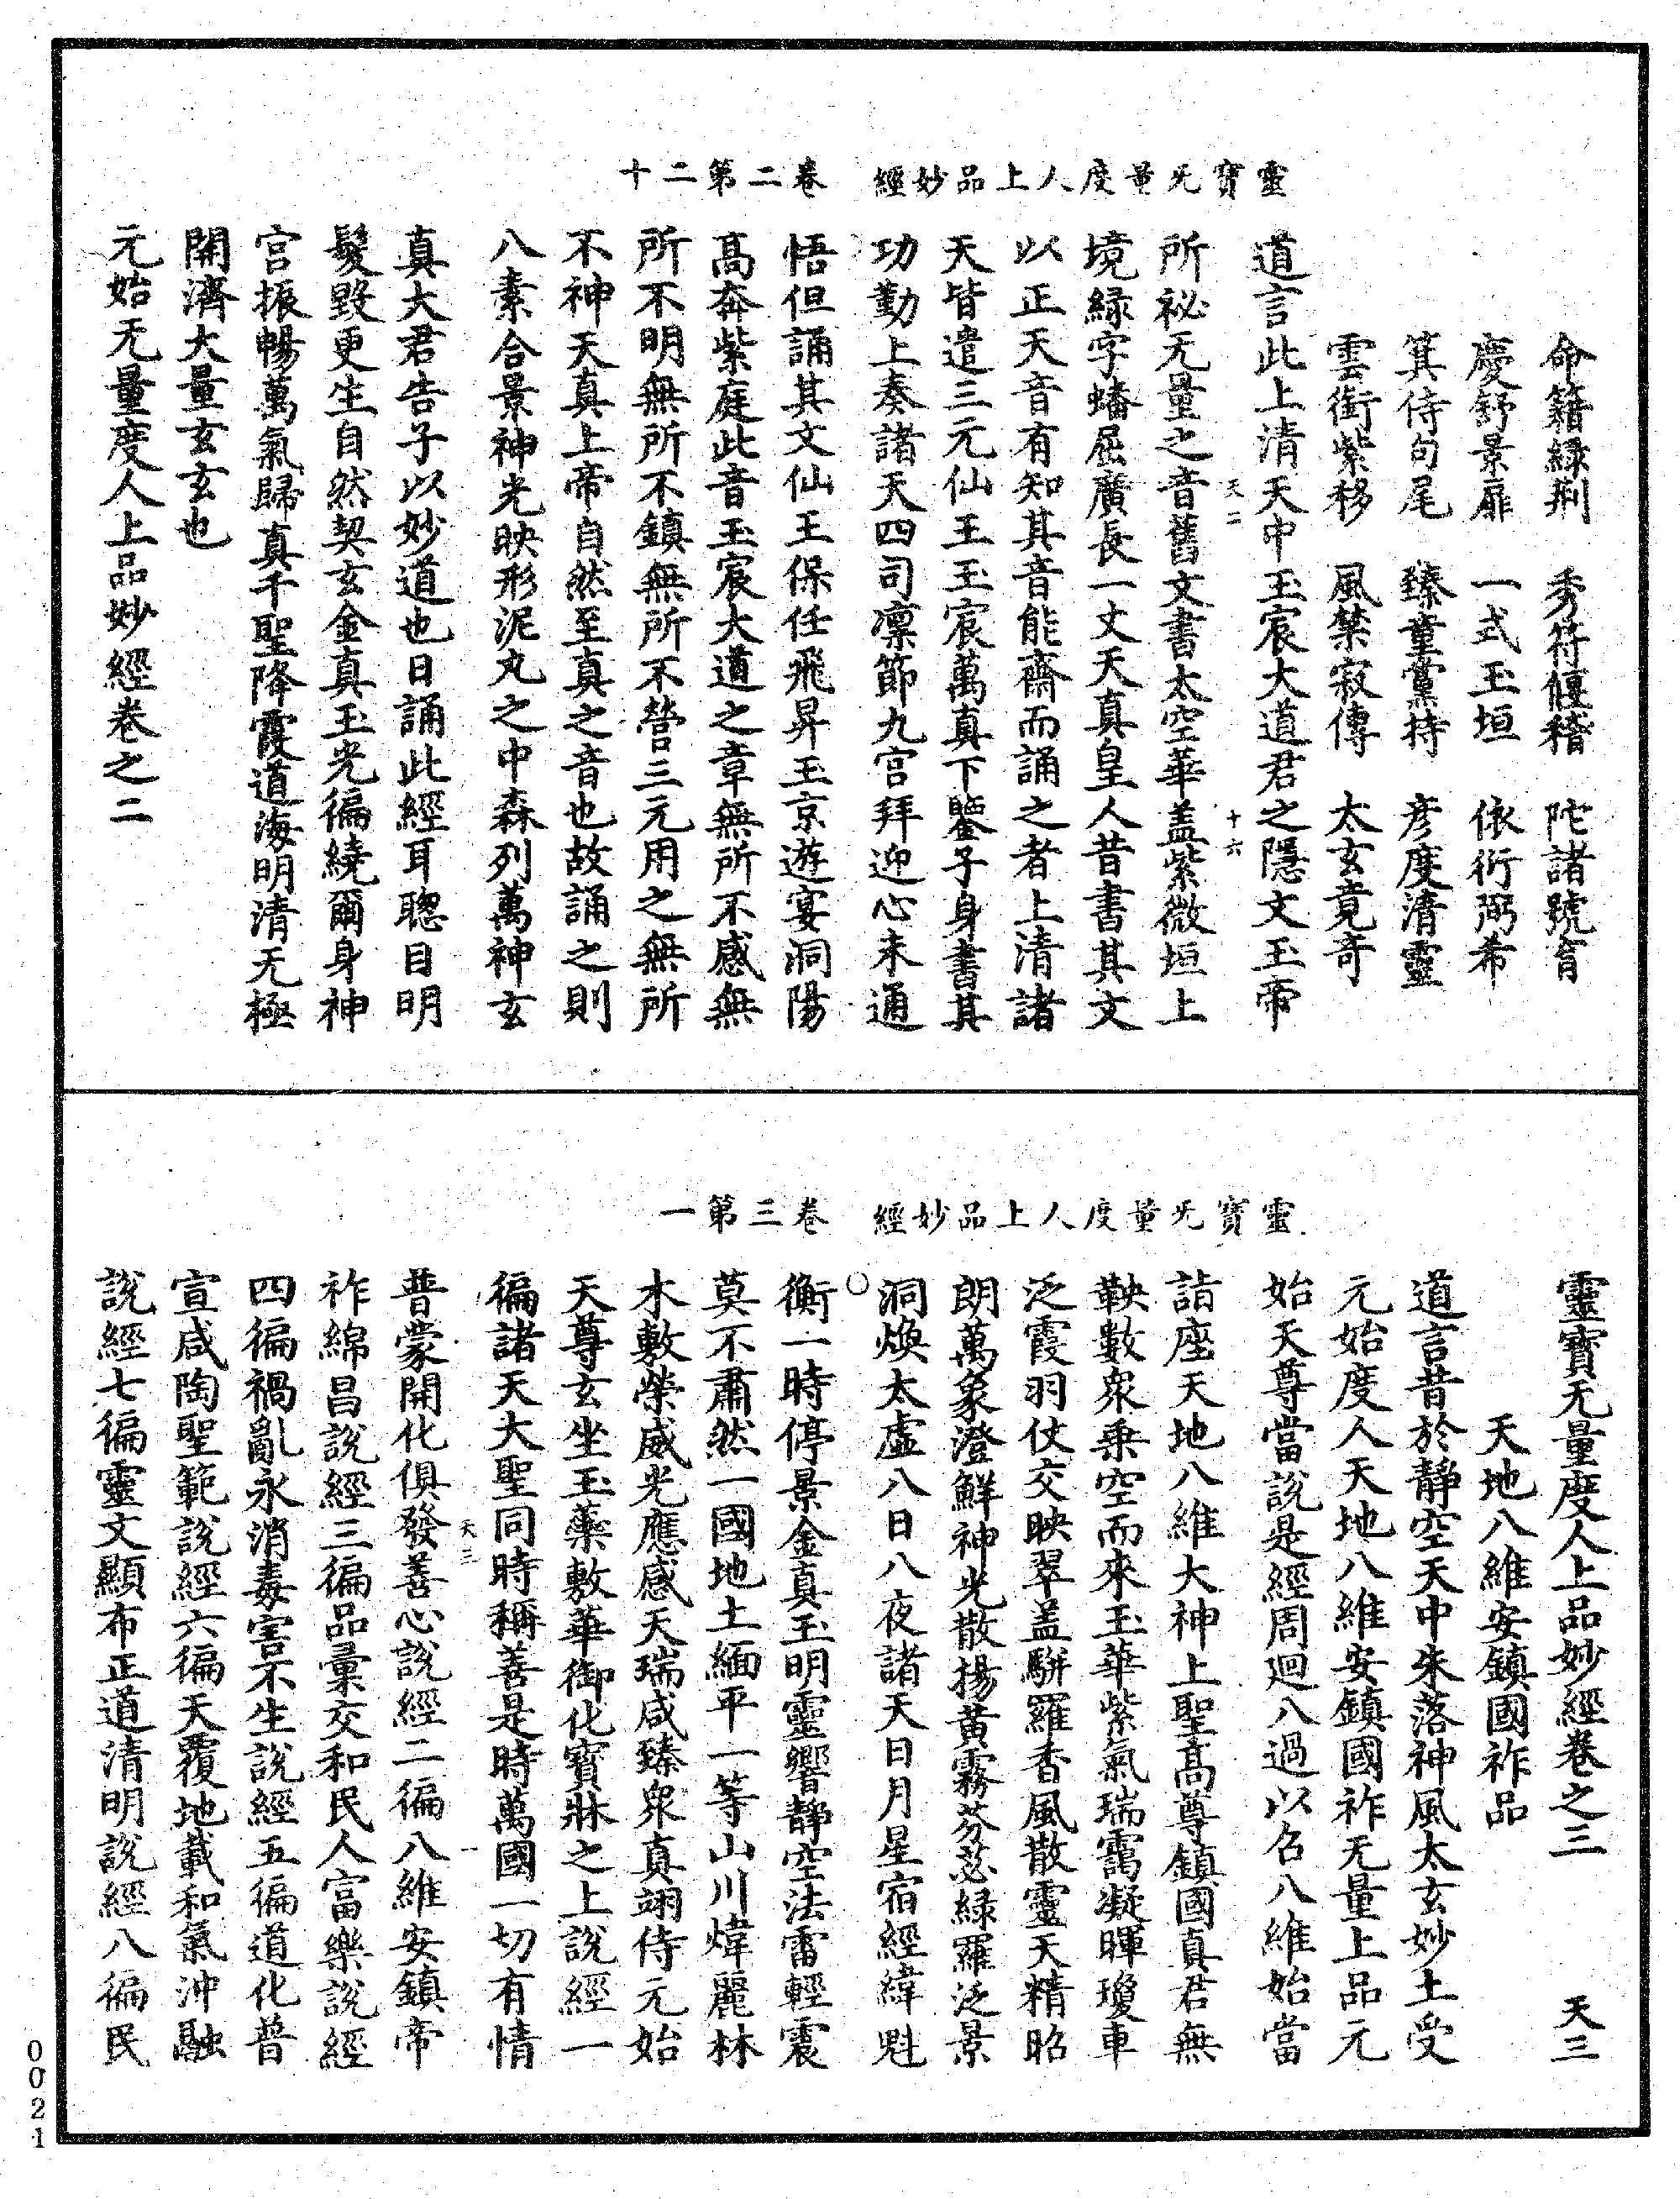 靈寶无量度人上品妙經　卷二第二十
命籍緑荆　秀符偃稽　陀諸號育
慶舒景扉　一式玉垣　依衍弼希
箕侍句尾　臻童黨持　彦度清靈
雲衛紫移　風禁寂傳　太玄竟奇
道言此上清天中玉宸大道君之隱文玉帝
天二　十六
所祕无量之音舊文書太空華盖紫微垣上
境緑字蟠屈廣長一丈天真皇人昔書其文
以正天音有知其音能齋而誦之者上清諸
天皆遣三元仙王玉宸萬真下鑒子身書其
功勤上奏諸天四司凛節九宫拜迎心未通
悟但誦其文仙王保任飛昇玉京遊宴洞陽
高奔紫庭此音玉宸大道之章無所不感無
所不明無所不鎮無所不營三元用之無所
不神天真上帝自然至真之音也故誦之則
八素合景神光映形泥丸之中森列萬神玄
真大君告子以妙道也日誦此經耳聰目明
髮毀更生自然契玄金真玉光徧繞爾身神
宫振暢萬氣歸真千聖降霞道海明清无極
開濟大量玄玄也
元始无量度人上品妙經卷之二
靈寶无量度人上品妙經　卷三第一
靈寶无量度人上品妙經卷之三　天三
天地八維安鎮國祚品
道言昔於靜空天中朱落神風太玄妙土受
元始度人天地八維安鎮國祚无量上品元
始天尊當說是經周迴八過以召八維始當
詣座天地八維大神上聖高尊鎮國真君無
鞅數衆乘空而來玉華紫氣瑞靄凝暉瓊車
泛霞羽仗交映翠盖駢羅香風散靈天精昭
朗萬象澄鮮神光散揚黃霧芬苾緑羅泛景
洞煥太虚八日八夜諸天日月星宿經緯魁
○
衡一時停景金真玉明靈響靜空法雷輕震
莫不肅然一國地土緬平一等山川煒麗林
木敷榮威光應感天瑞咸臻衆真翊侍元始
天尊玄坐玉蘂敷華御化寶牀之上說經一
徧諸天大聖同時稱善是時萬國一切有情
天三　一
普蒙開化俱發善心說經二徧八維安鎮帝
祚綿昌說經三徧品彙交和民人富樂說經
四徧禍亂永消毒害不生說經五徧道化普
宣咸陶聖範說經六徧天覆地載和氣沖融
說經七徧靈文顯布正道清明說經八徧民
0021